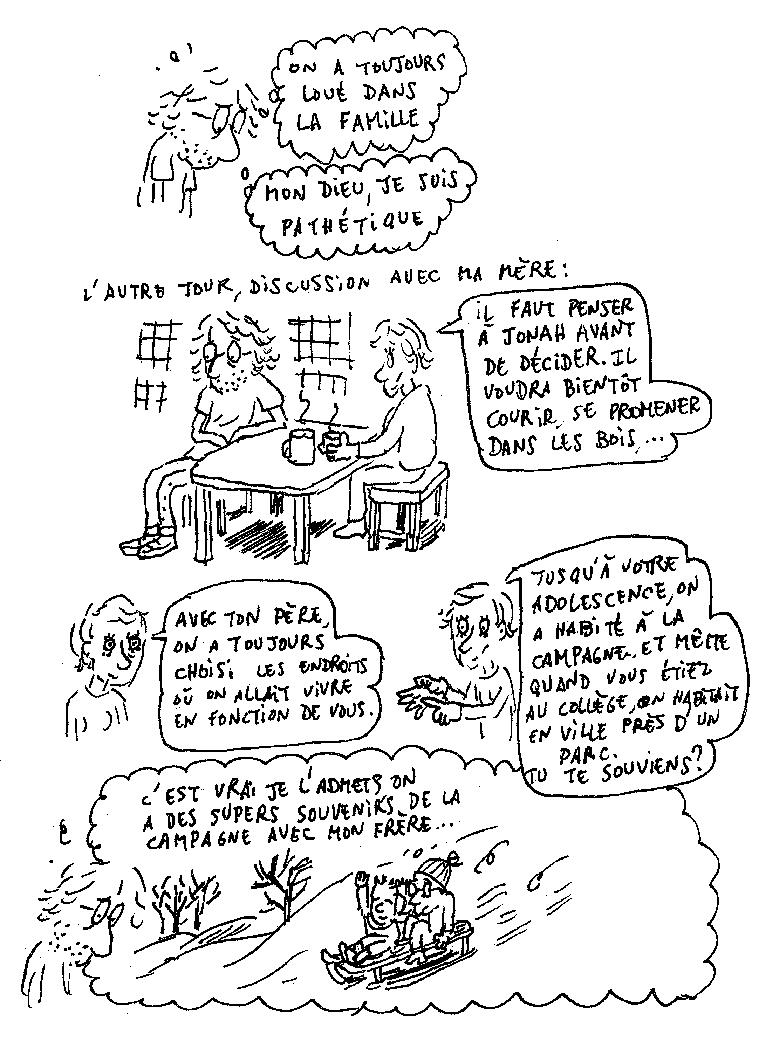 ON A TOUJOURS
LOUÉ DANS
LA FAMILLE
MON DIEU, JE SUIS
PATHÉTIQUE
L'AUTRE JOUR, DISCUSSION AVEC MA MÈRE :
IL FAUT PENSER
À JONAH AVANT
DE DÉCIDER. IL
VOUDRA BIENTÔT
COURIR, SE PROMENER
DANS LES BOIS,...
AVEC TON PÈRE,
ON A TOUJOURS
CHOISI LES ENDROITS
OÙ ON ALLAIT VIVRE
EN FONCTION DE VOUS.
JUSQU'À VOTRE
ADOLESCENCE, ON
A HABITÉ À LA
CAMPAGNE. ET MÊME
QUAND VOUS ÉTIEZ
AU COLLÈGE, ON HABITAIT
EN VILLE PRÈS D'UN
PARC.
TU TE SOUVIENS?
C'EST VRAI JE L'ADMETS ON
A DES SUPERS SOUVENIRS DE LA
CAMPAGNE AVEC MON FRÈRE...